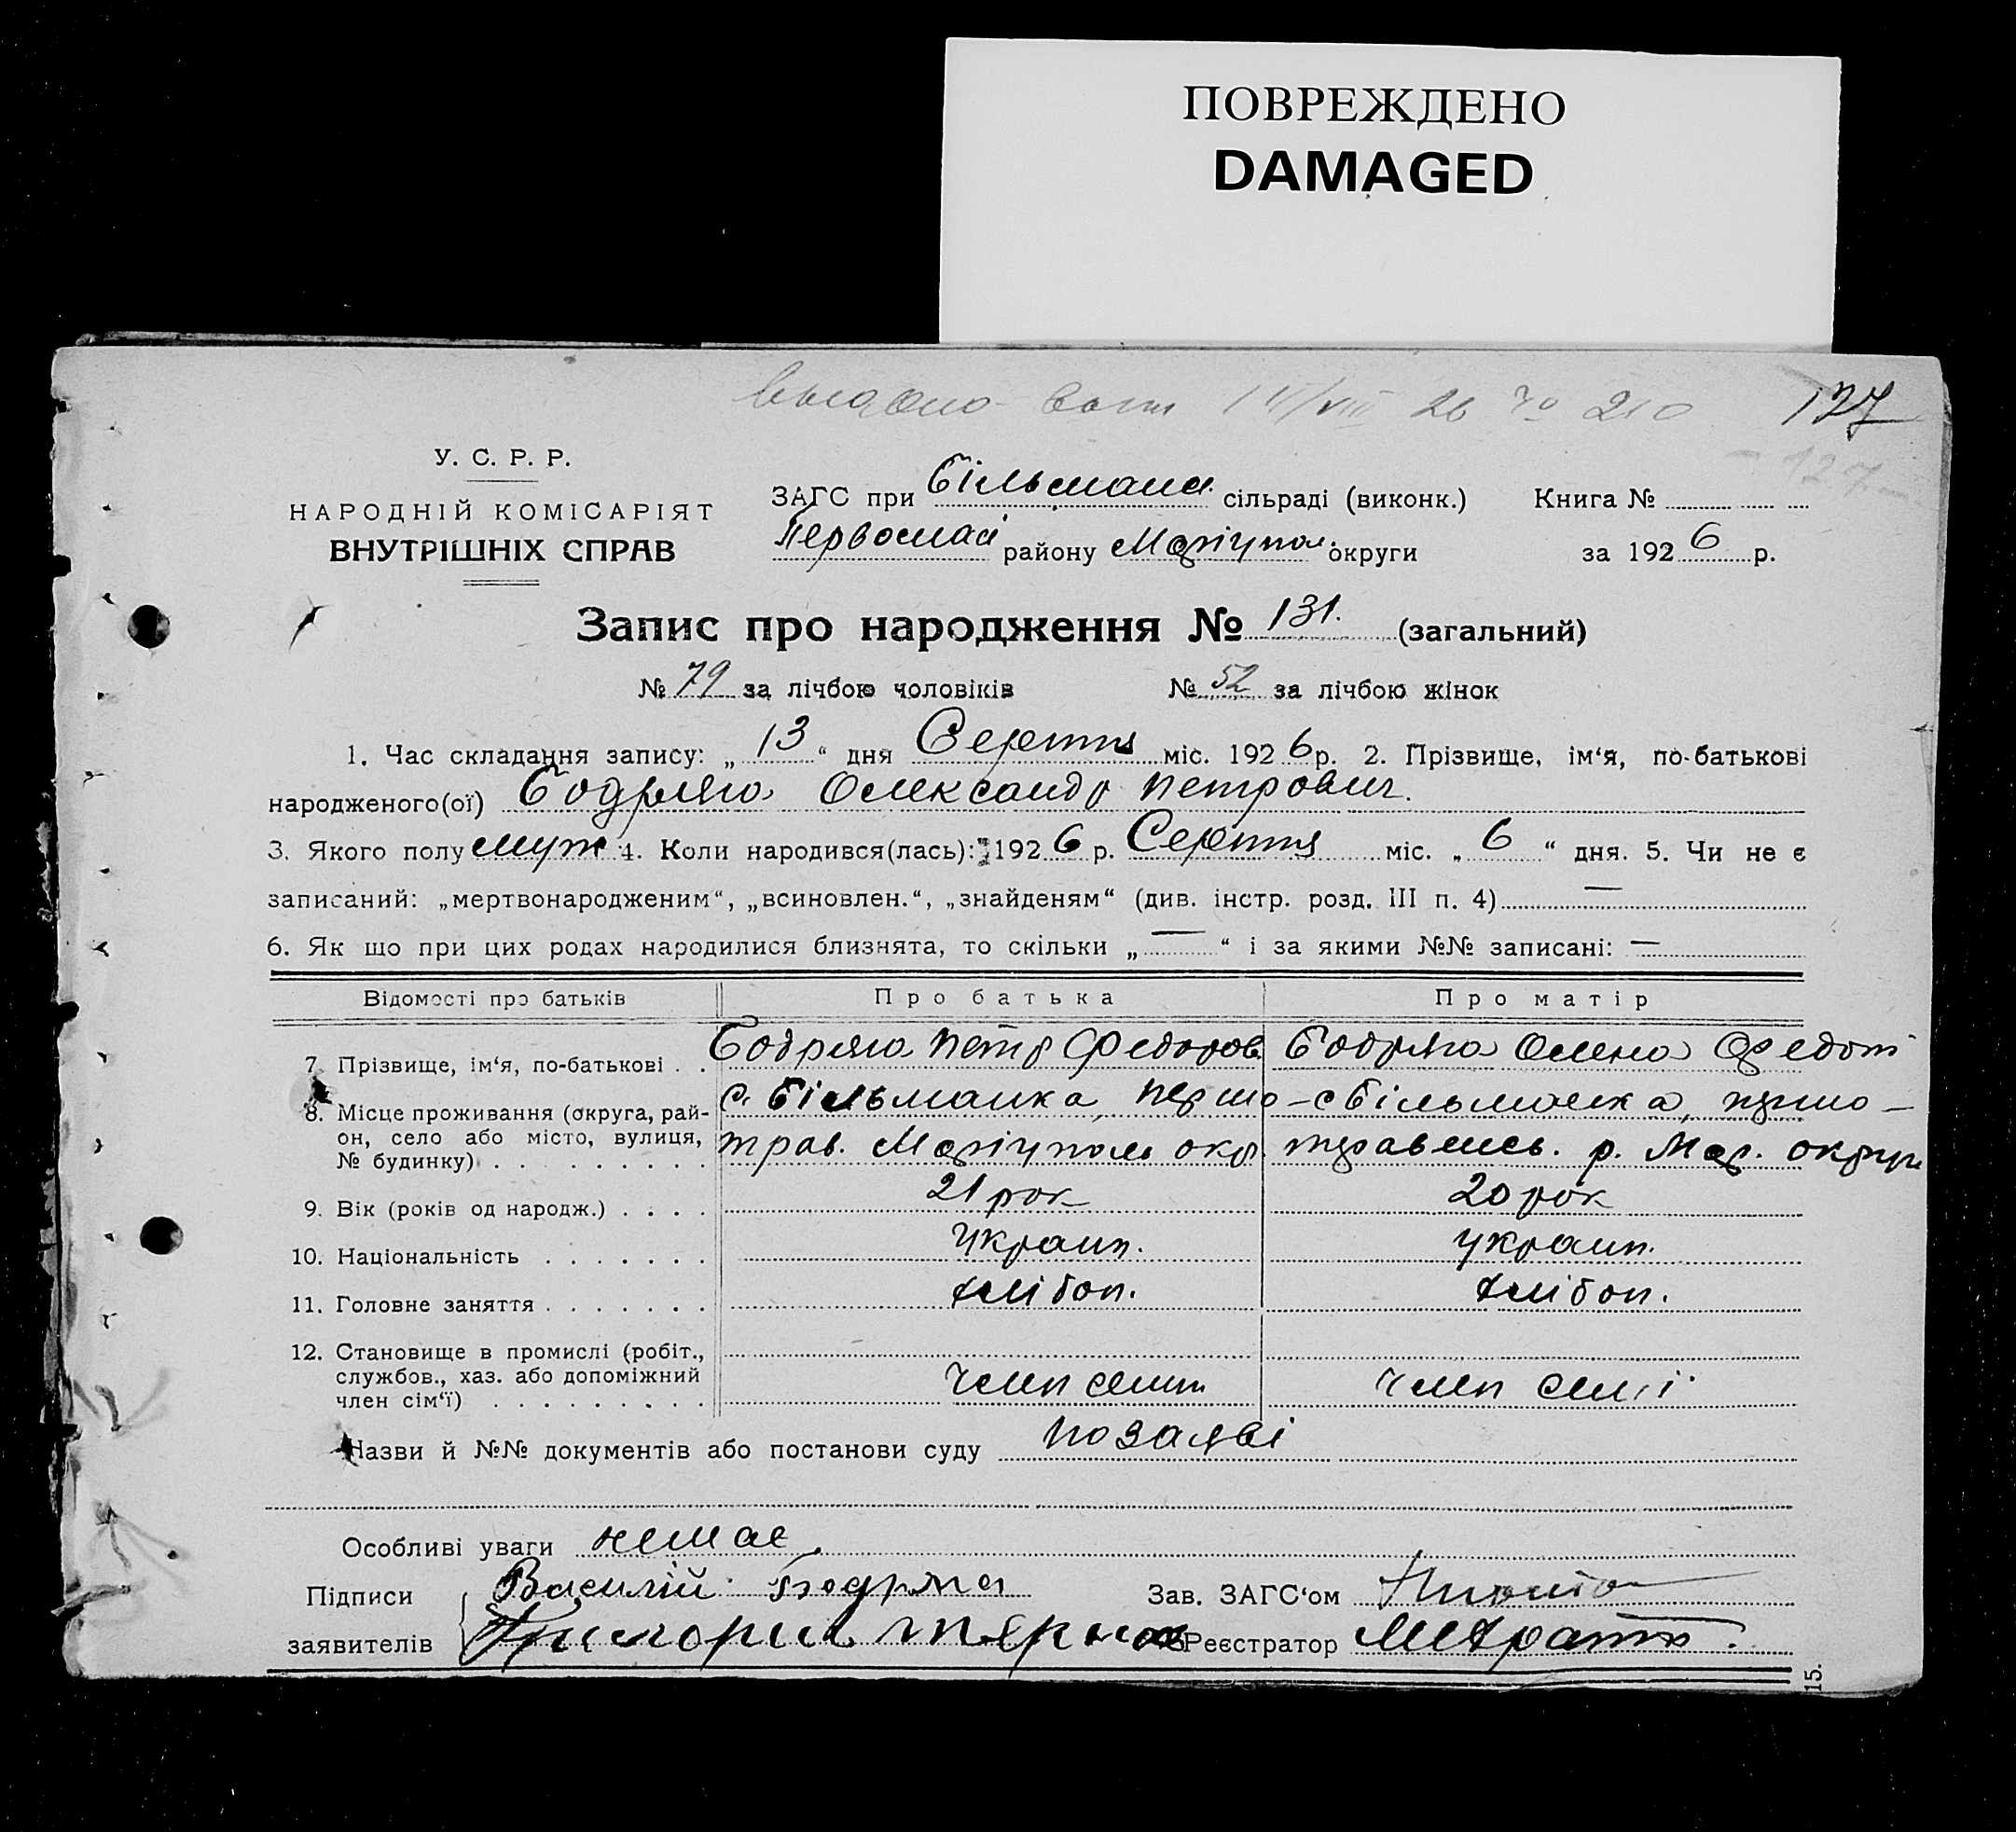 ПОВРЕЖДЕНО
DAMAGED
177
127
У. С. Р. Р.
НАРОДНІЙ КОМІСАРІЯТ
ВНУТРІШНІХ СПРАВ
ЗАГС при Більмана. сільраді (виконк.) Книга №
Первомай району Маріупол. округи за 1926 р.
Запис про народження № 131. (загальний)
№ 79 за лічбою чоловіків № 52 за лічбою жінок
1. Час складання запису: „13“ дня Серпня міс. 1926 р. 2. Прізвище, ім‘я, по-батькові
народженого(ої) Бодряга Олександр Петрович.
3. Якого полу муж. 4. Коли народився(лась): 1926 р. Серпня міс. „6“ дня. 5. Чи не є
записаний: „мертвонародженим“, „всиновлен.“, „знайденям“ (див. інстр. розд. III п. 4) —
6. Як що при цих родах народилися близнята, то скільки „—“ і за якими №№ записані: —
Відомості про батьків Про батька Про матір
7. Прізвище, ім‘я, по-батькові . . Бодряга Петр Федоров. Бодряга Олена Федот
8. Місце проживання (округа, рай- с. Більманка, першо- с Більманка, першо-
он, село або місто, вулиця, трав. Маріуполь окр. травенсь. р. Мар. округи
№ будинку) . . . . . . . . .
9. Вік (років од народж.) . . . . 21 рок 20 рок
10. Національність . . . . . . . Украин. украин.
11. Головне заняття . . . . . . . хлібоп. хлібоп.
12. Становище в промислі (робіт.,
службов., хаз. або допоміжний
член сім‘ї) . . . . . . . . . член семи член семіі
Назви й №№ документів або постанови суду по заяві
Особливі уваги немає
Підписи Василій Бодряга Зав. ЗАГС‘ом
заявителів Григорий Реєстратор
15.